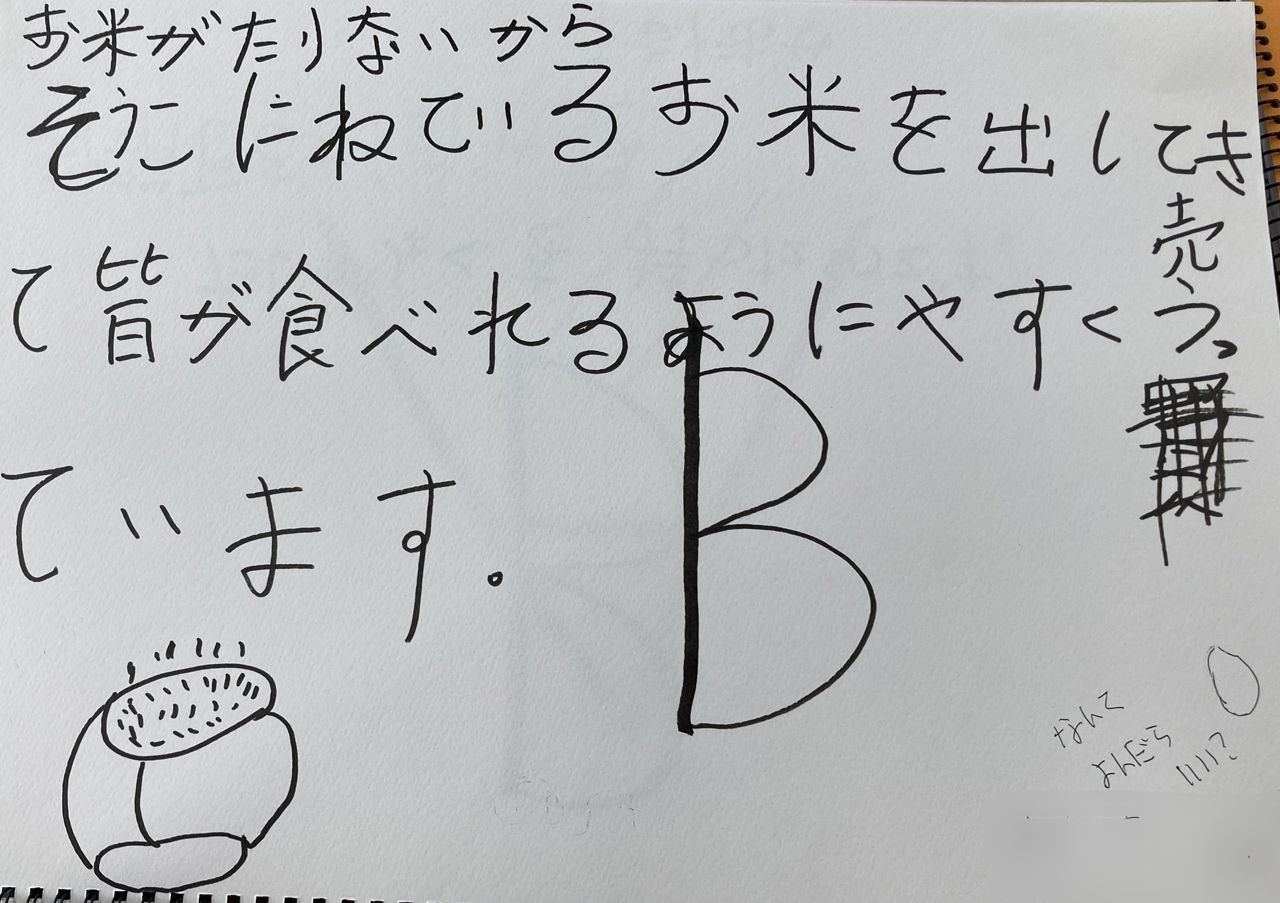 お米がたりないから
そうこにねているお米を出してき
て皆が食べれるようにやすく売う。
ています。
B
なんて
よんだら
いい?